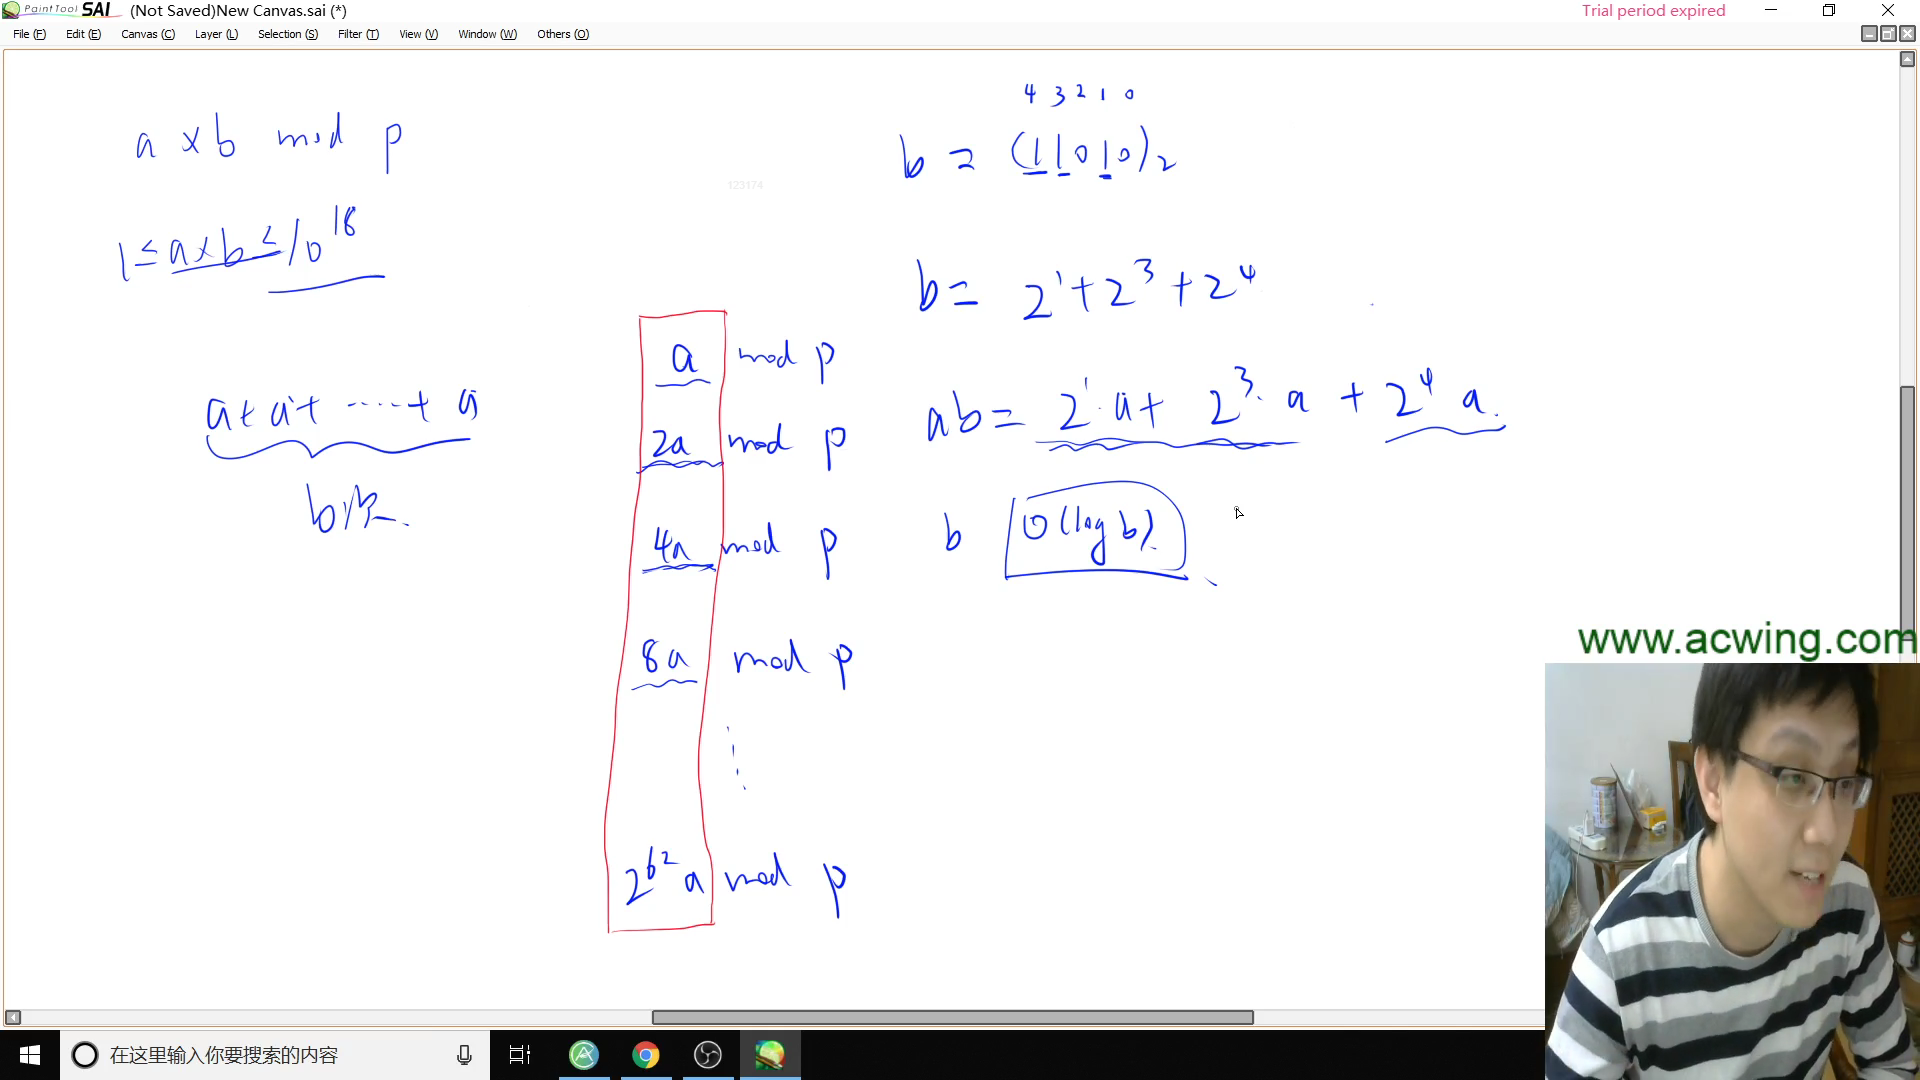 PaintTool SAI (Not Saved)New Canvas.sai (*)
Trial period expired
File (F) Edit (E) Canvas (C) Layer (L) Selection (S) Filter (T) View (V) Window (W) Others (O)
a × b mod p
1 ≤ a×b ≤ 10^18
a+a+ ·····+ a
b次.
123174
a mod p
2a mod p
4a mod p
8a mod p
⋮
2^62 a mod p
4 3 2 1 0
b = (11010)₂
b = 2^1+2^3+2^4
ab = 2^1·a + 2^3·a + 2^4 a.
b O(log b).
www.acwing.com
在这里输入你要搜索的内容